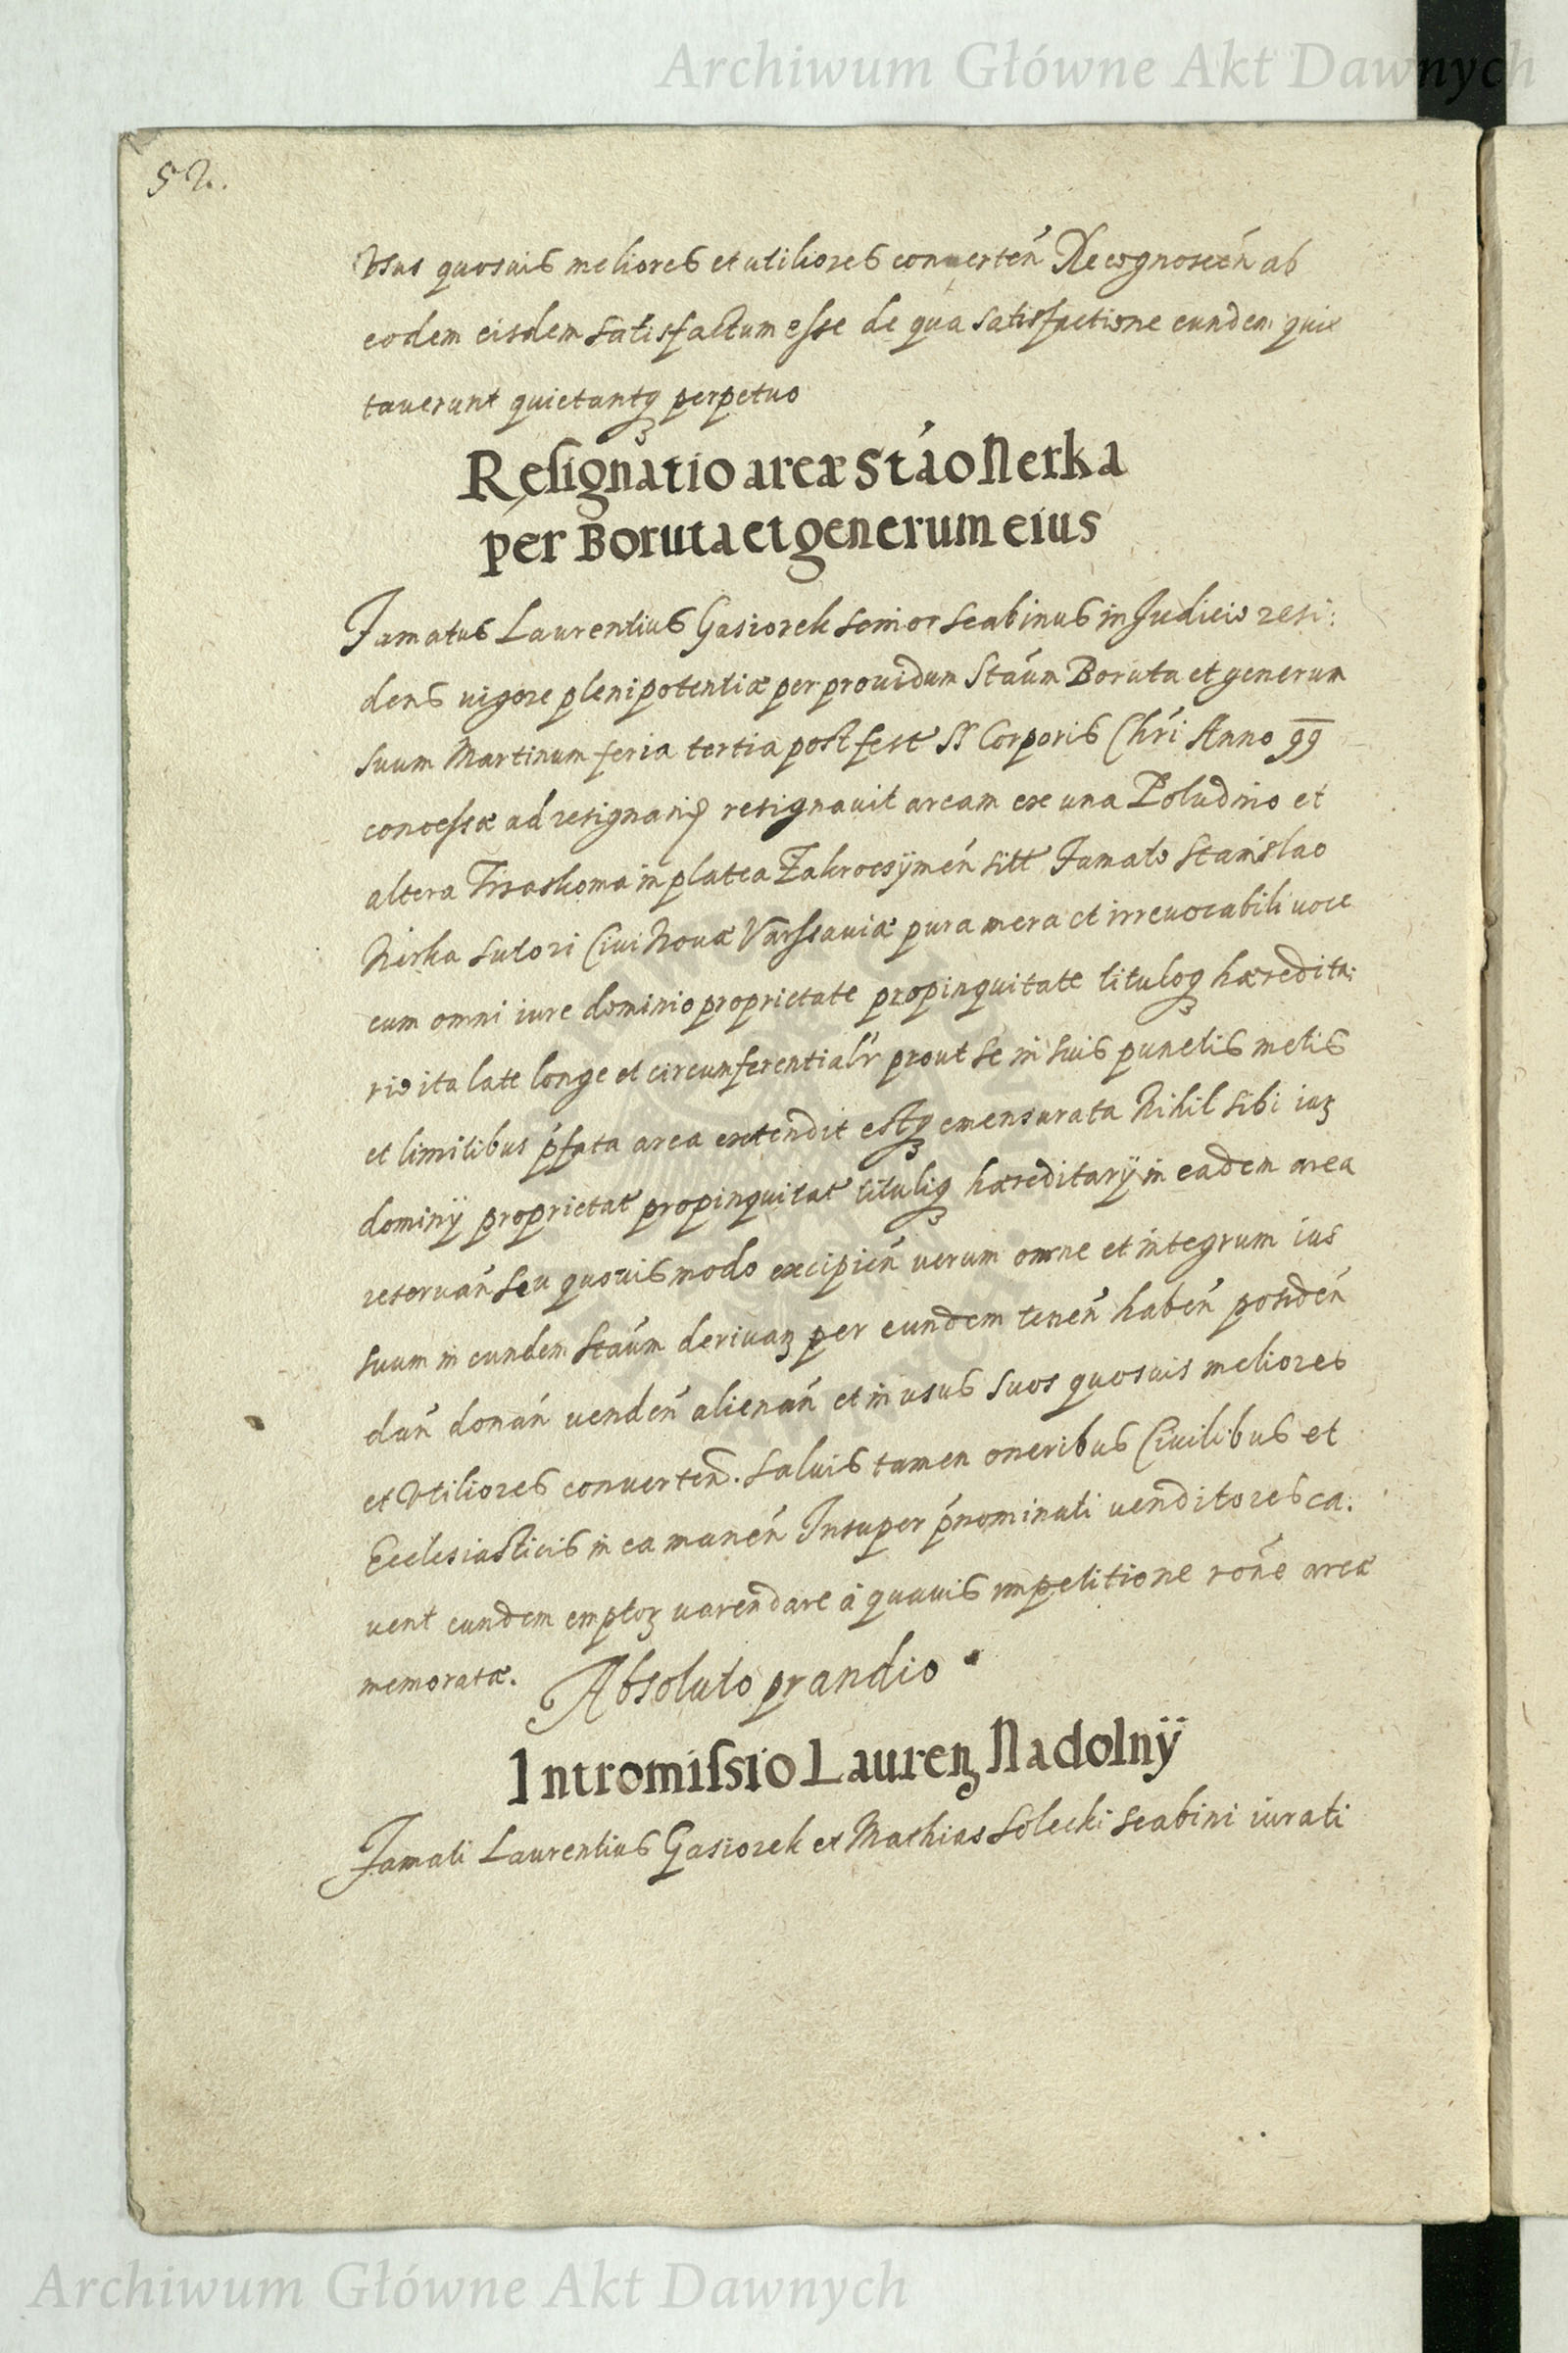 Archiwum Główne Akt Dawnych
52.
Vsus quosuis meliores et utiliores conuerteń Recognosceń ab
eodem eisdem satisfactum esse de qua satisfactione eundem quie
tauerunt quietantq perpetuo
Resignatio areæ Stáo Nerka
per Boruta et generum eius
Famatus Laurentius Gasiorek senior scabinus in Judicio resi:
dens uigore plenipotentiæ per prouidum Staúm Boruta et generum
suum Martinum feria tertia post fest SS Corporis Chri Anno 99
concessæ ad resignand resignauit aream ex una Poludnio et
altera in platea Zakrocsÿmeń sitt Famato Stanislao
Nirka sutori Ciui Nouæ Varssauiæ pura mera et irreuocabili uoce
cum omni iure dominio proprietate propinquitate tituloq hæredita:
rio ita late longe et circumferentialr prout se in suis punctis metis
et limitibus pfata area extendit estq emensurata Nihil sibi iuz
dominÿ proprietat propinquitat tituliq hæreditarÿ in eadem area
reseruań seu quouismodo excipień uerum omne et integrum ius
suum in eundem Staúm deriuaz per eundem teneń habeń possideń
dań donań uendeń alienań et in usus suos quosuis meliores
et Vtiliores conuerteń. Saluis tamen oneribus Ciuilibus et
Ecclesiasticis in ea maneń Insuper pnominati uenditores ca:
uent eundem emptoz uarendare á quauis impetitione rońe areæ
memoratæ. Absoluto prandio
Intromissio Laurenz Nadolnÿ
Famati Laurentius Gasiorek et Mathias Solecki scabini iurati
Archiwum Główne Akt Dawnych